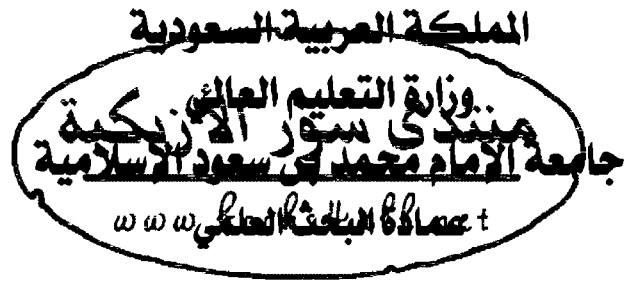 المملكة العربية السعودية
وزارة التعليم العالي
منتدى سور الأزبكية
جامعة الإمام محمد بن سعود الإسلامية
www
عمادة البحث العلمي